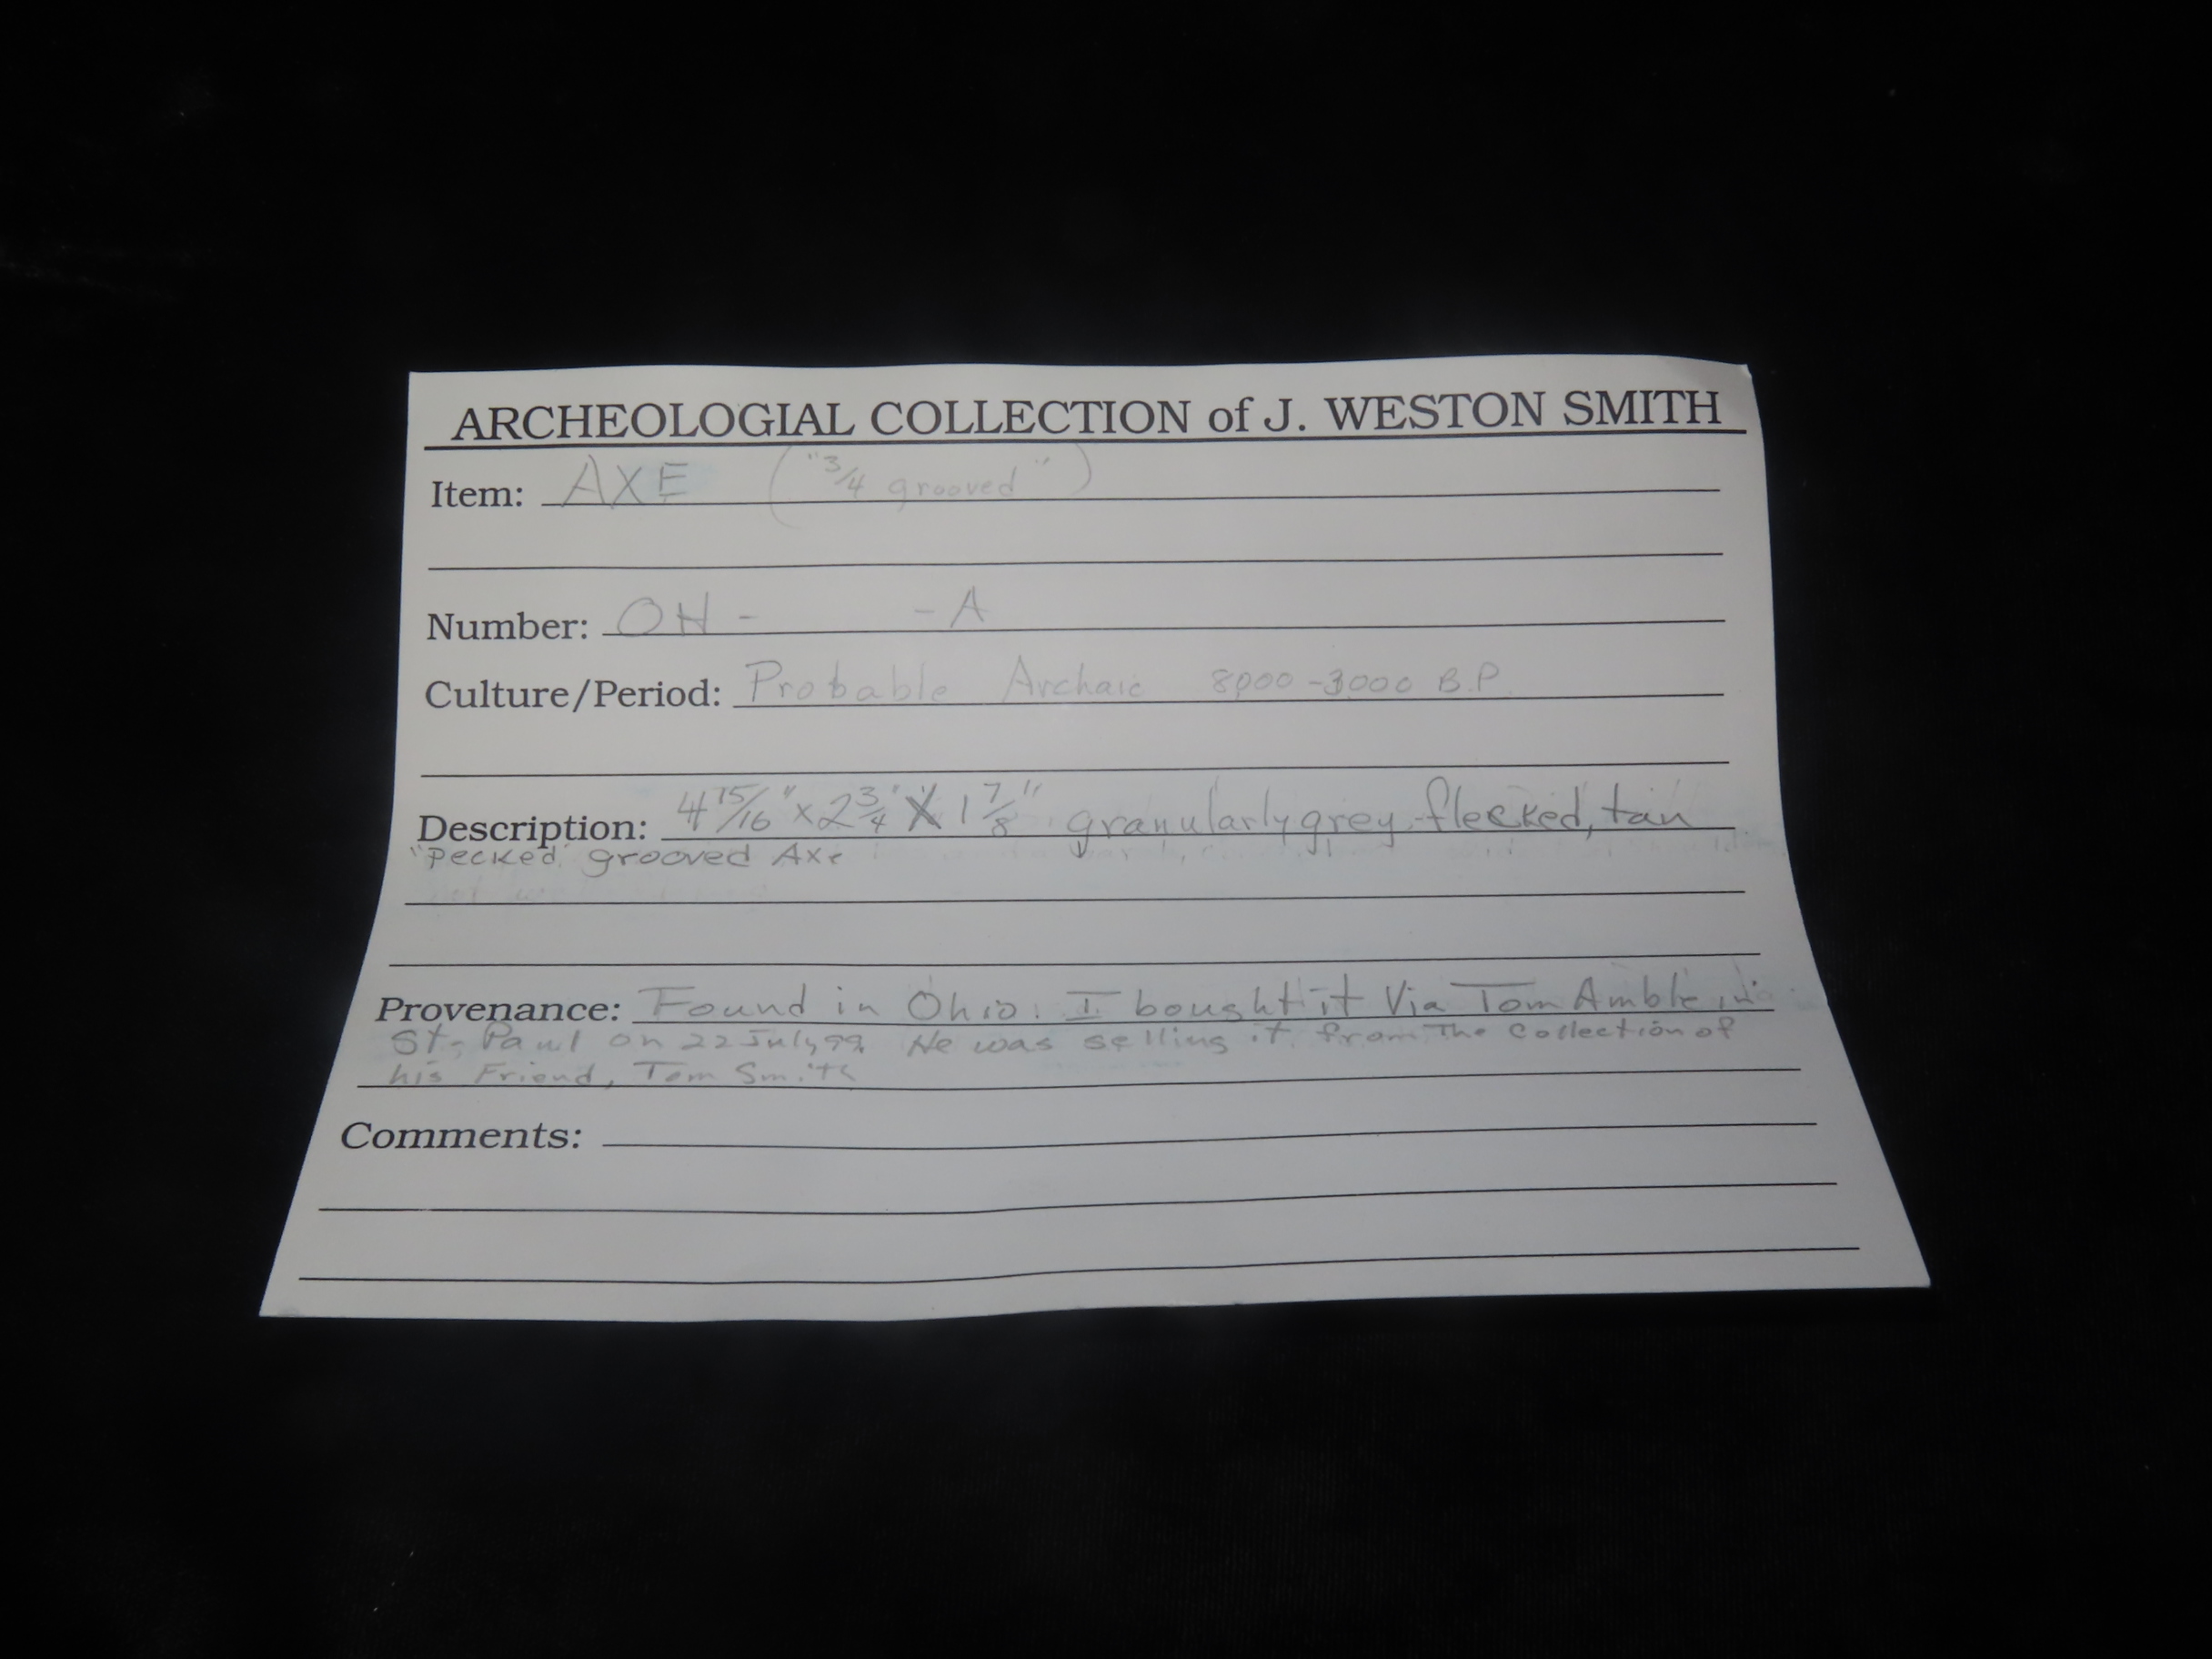 ARCHEOLOGIAL COLLECTION of J. WESTON SMITH
Item: AXE ("3/4 grooved")
Number: OH - - A
Culture/Period: Probable Archaic 8000-3000 B.P.
Description: 4 15/16" x 2 3/4" X 1 7/8" granularly grey-flecked, tan
"Pecked" grooved Axe
Provenance: Found in Ohio. I bought it Via Tom Amble in
St. Paul on 22 July 99 He was selling it from The Collection of
his Friend, Tom Smith
Comments: